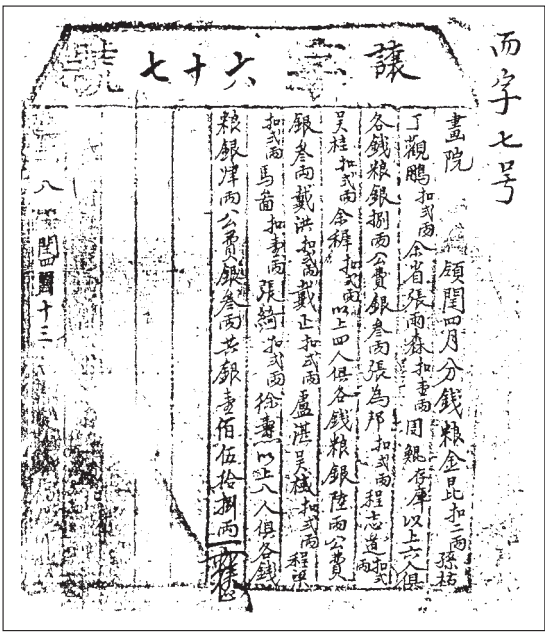 而字七号
讓 三 六十七 号
畫院 領閏四月分錢粮金昆扣二兩孫祜
丁觀鵬扣弍兩余省張雨森扣壹兩周鯤存庫以上六人俱
各錢粮銀捌兩公費銀叁兩張為邦扣弍兩程志道扣弍兩
吴桂扣弍兩余穉扣弍兩以上四人俱各錢粮銀陸兩公費
銀叁兩戴洪扣弍兩戴正扣弍兩盧湛吴棫扣弍兩程梁
扣弍兩馬圖扣壹兩張綺扣弍兩徐燾以上八人俱各錢
粮銀肆兩公費銀叁兩共銀壹佰伍拾捌兩
八 閏四月十三